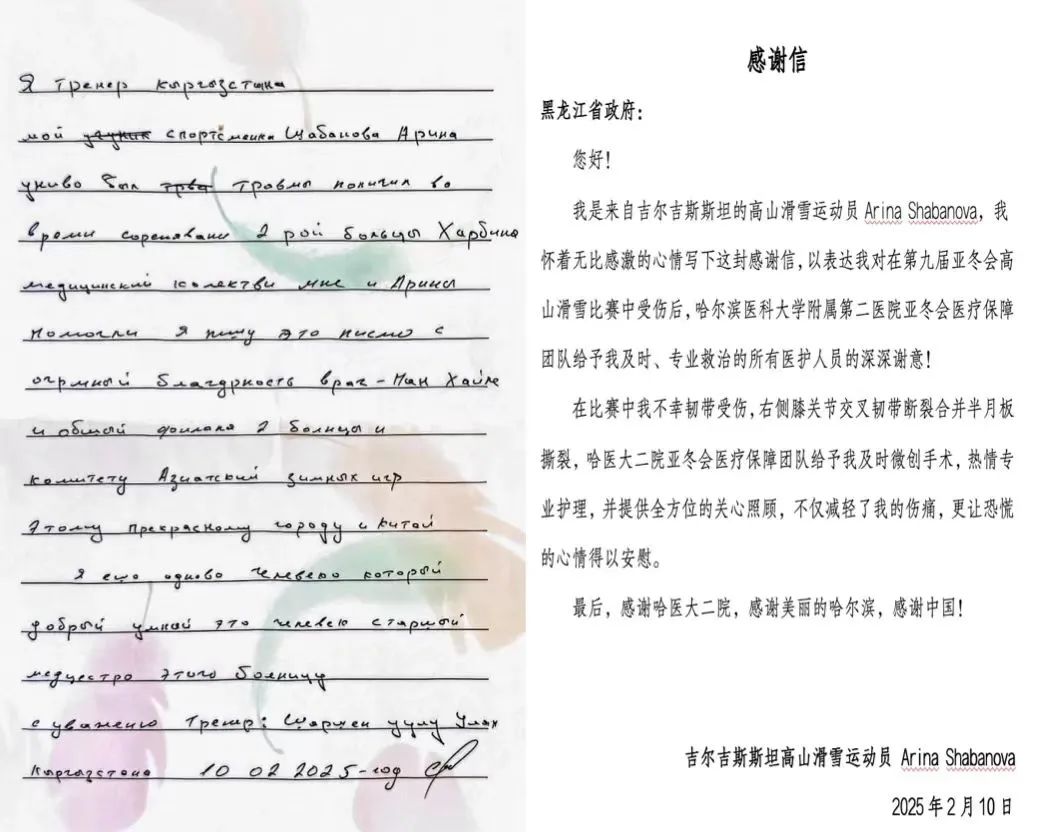 Я тренер Кыргызстана
мой ученик спортсменка Шабанова Арина
униво был трва травмы поличил во
время соренявани 2 рой больцы Харбина
медицинский колектви мне и Арины
помогли я пишу это писмо с
огрмный благдрность врач - Ман Хайле
и обший филала 2 болницы и
комитету Азиатский зимных игр
Этому прекрасному городу и Китай
Я ешо одново человеко который
добрый умной это человек старший
медцестро этого болницу
с уважению Тренер: Шаршен уулу Улан
Кыргызстана 10 02 2025-год
感谢信
黑龙江省政府：
您好！
我是来自吉尔吉斯斯坦的高山滑雪运动员 Arina Shabanova，我
怀着无比感激的心情写下这封感谢信，以表达我对在第九届亚冬会高
山滑雪比赛中受伤后，哈尔滨医科大学附属第二医院亚冬会医疗保障
团队给予我及时、专业救治的所有医护人员的深深谢意！
在比赛中我不幸韧带受伤，右侧膝关节交叉韧带断裂合并半月板
撕裂，哈医大二院亚冬会医疗保障团队给予我及时微创手术，热情专
业护理，并提供全方位的关心照顾，不仅减轻了我的伤痛，更让恐慌
的心情得以安慰。
最后，感谢哈医大二院，感谢美丽的哈尔滨，感谢中国！
吉尔吉斯斯坦高山滑雪运动员 Arina Shabanova
2025 年 2 月 10 日